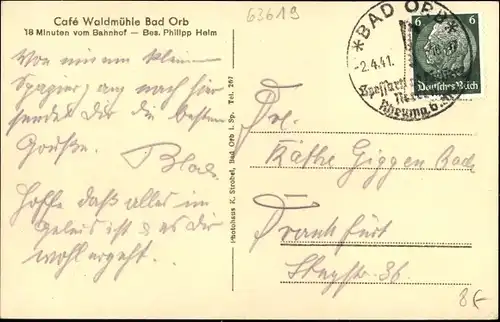 Café Waldmühle Bad Orb
18 Minuten vom Bahnhof — Bes. Philipp Heim
63619
Von einem kleinen
Spapier, gang nach hier
sendet Dir die besten
Grüße.
Hoffe daß alles im
geleis ist & es dir
wohl ergeht.
Photohaus K. Strobel, Bad Orb i. Sp. Tel. 267
*BAD ORB*
-2.4.41.
6 6
Deutsches Reich
Frl.
Käthe Giggen Bach
Frankfurt
36
8€